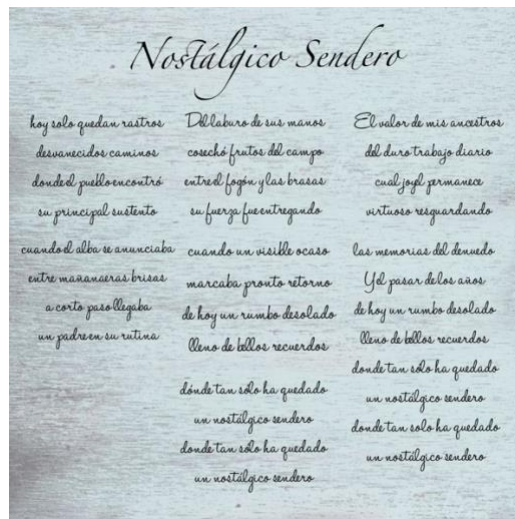 Nostálgico Sendero
hoy solo quedan rastros
desvanecidos caminos
donde el pueblo encontró
su principal sustento
cuando el alba se anunciaba
entre mañanaeras brisas
a corto paso llegaba
un padre en su rutina
Del laburo de sus manos
cosechó frutos del campo
entre el fogón y las brasas
su fuerza fue entregando
cuando un visible ocaso
marcaba pronto retorno
de hoy un rumbo desolado
lleno de bellos recuerdos
dónde tan sólo ha quedado
un nostálgico sendero
donde tan sólo ha quedado
un nostálgico sendero
El valor de mis ancestros
del duro trabajo diario
cual joyel permanece
virtuoso resguardando
las memorias del denuedo
Y el pasar de los años
de hoy un rumbo desolado
lleno de bellos recuerdos
donde tan sólo ha quedado
un nostálgico sendero
donde tan sólo ha quedado
un nostálgico sendero